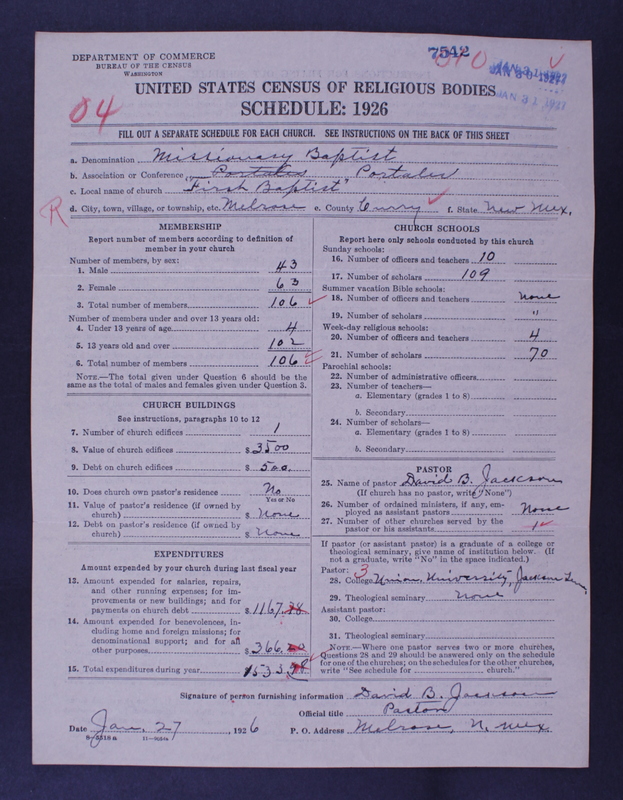 DEPARTMENT OF COMMERCE
BUREAU OF THE CENSUS
WASHINGTON
7542
JAN 31 1927
UNITED STATES CENSUS OF RELIGIOUS BODIES
SCHEDULE: 1926
04
FILL OUT A SEPARATE SCHEDULE FOR EACH CHURCH. SEE INSTRUCTIONS ON THE BACK OF THIS SHEET
a. Denomination Missionary Baptist
b. Association or Conference Portales Portales
c. Local name of church "First Baptist"
R
d. City, town, village, or township, etc. Melrose e. County Curry f. State New Mex.
MEMBERSHIP
Report number of members according to definition of
member in your church
Number of members, by sex:
1. Male 43
2. Female 63
3. Total number of members 106
Number of members under and over 13 years old:
4. Under 13 years of age 4
5. 13 years old and over 102
6. Total number of members 106
NOTE.—The total given under Question 6 should be the
same as the total of males and females given under Question 3.
CHURCH BUILDINGS
See instructions, paragraphs 10 to 12
7. Number of church edifices 1
8. Value of church edifices $3500
9. Debt on church edifices $500
10. Does church own pastor's residence No
Yes or No
11. Value of pastor's residence (if owned by
church) $ None
12. Debt on pastor's residence (if owned by
church) $ None
EXPENDITURES
Amount expended by your church during last fiscal year
13. Amount expended for salaries, repairs,
and other running expenses; for im-
provements or new buildings; and for
payments on church debt $1167.38
14. Amount expended for benevolences, in-
cluding home and foreign missions; for
denominational support; and for all
other purposes $366.
15. Total expenditures during year 1533.38
CHURCH SCHOOLS
Report here only schools conducted by this church
Sunday schools:
16. Number of officers and teachers 10
17. Number of scholars 109
Summer vacation Bible schools:
18. Number of officers and teachers none
19. Number of scholars "
Week-day religious schools:
20. Number of officers and teachers 4
21. Number of scholars 70
Parochial schools:
22. Number of administrative officers
23. Number of teachers—
a. Elementary (grades 1 to 8)
b. Secondary
24. Number of scholars—
a. Elementary (grades 1 to 8)
b. Secondary
PASTOR
25. Name of pastor David B. Jackson
(If church has no pastor, write "None")
26. Number of ordained ministers, if any, em-
ployed as assistant pastors None
27. Number of other churches served by the
pastor or his assistants 1
If pastor (or assistant pastor) is a graduate of a college or
theological seminary, give name of institution below. (If
not a graduate, write "No" in the space indicated.)
Pastor: 3
28. College Union University, Jackson Tenn
29. Theological seminary none
Assistant pastor:
30. College
31. Theological seminary
NOTE.—Where one pastor serves two or more churches,
Questions 28 and 29 should be answered only on the schedule
for one of the churches; on the schedules for the other churches,
write "See schedule for church."
Signature of person furnishing information David B. Jackson
Official title Pastor
Date Jan. 27, 1926 P. O. Address Melrose, N. Mex.